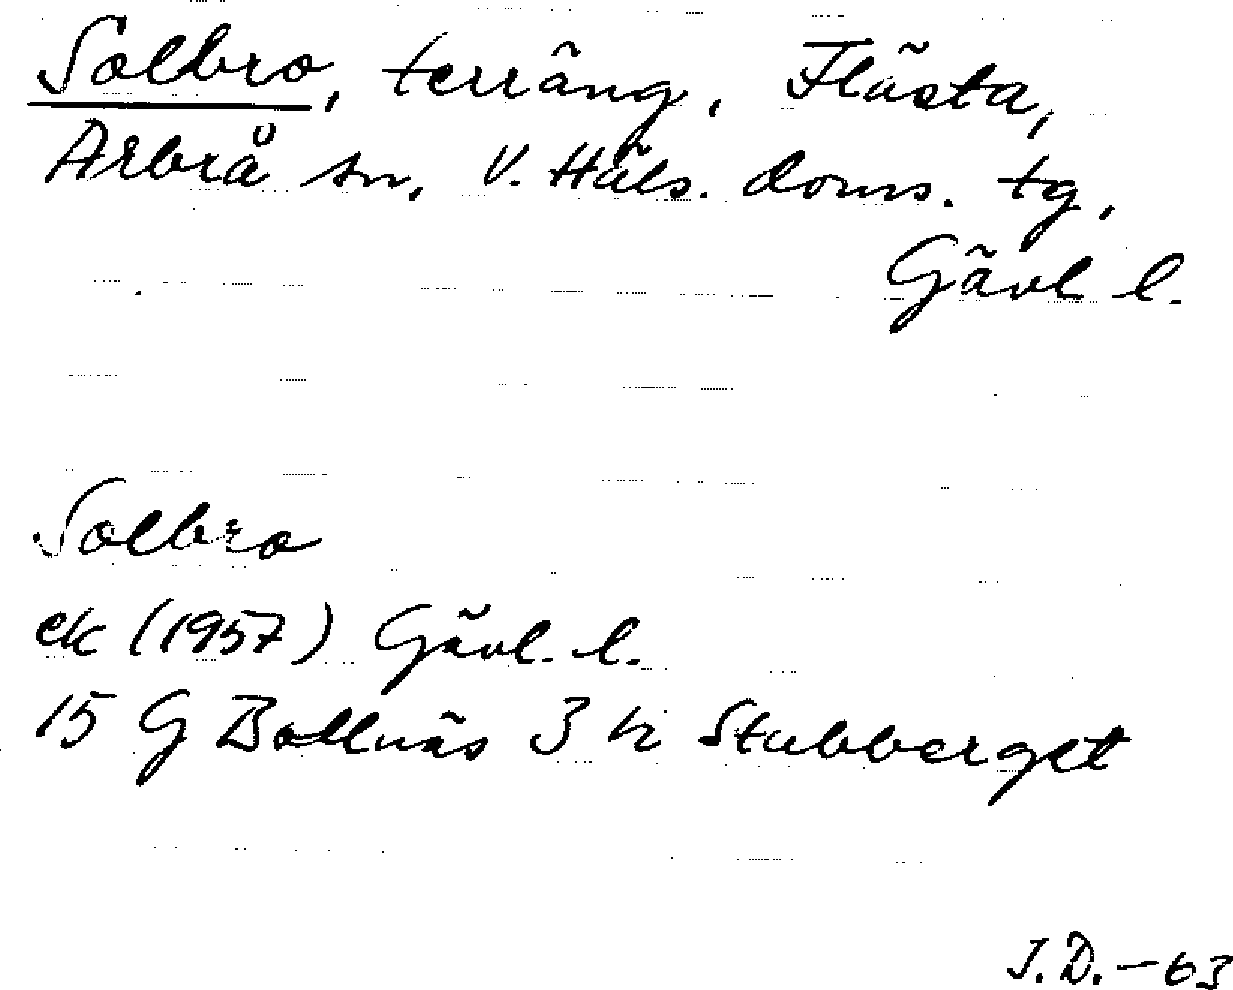 Solbro, terräng, Flästa,
Arbrå sn, V. Häls. doms. tg,
Gävl l.
Solbro
ek (1957) Gävl. l.
15 G Bollnäs 3 h Stubberget
J.D. -63